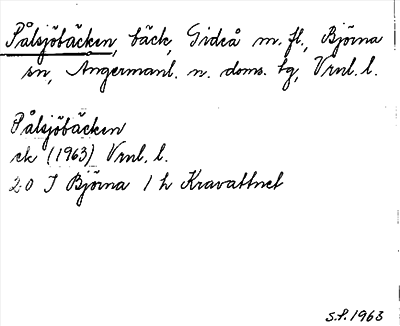 Pålsjöbäcken, bäck, Gideå m. fl., Björna
sn, Ångermanl. n. doms. tg, Vrnl. l.
Pålsjöbäcken
ek (1963) Vrnl. l.
20 J Björna 1 h Kravattnet
S.F. 1963